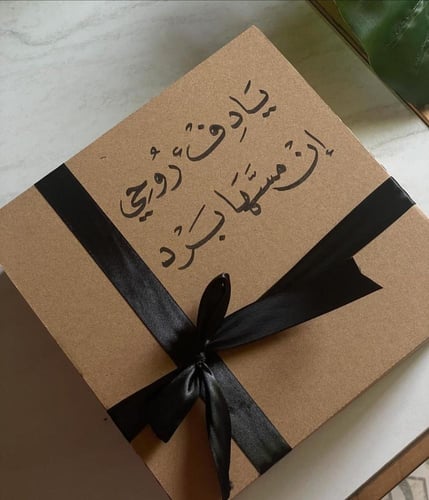 يَا دِفْءَ رُوُحِي
إِنْ مسَّهَا بَرَد